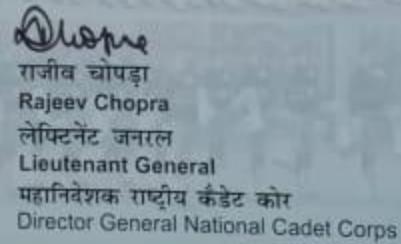 Chopra
राजीव चोपड़ा
Rajeev Chopra
लेफ्टिनेंट जनरल
Lieutenant General
महानिदेशक राष्ट्रीय कैडेट कोर
Director General National Cadet Corps